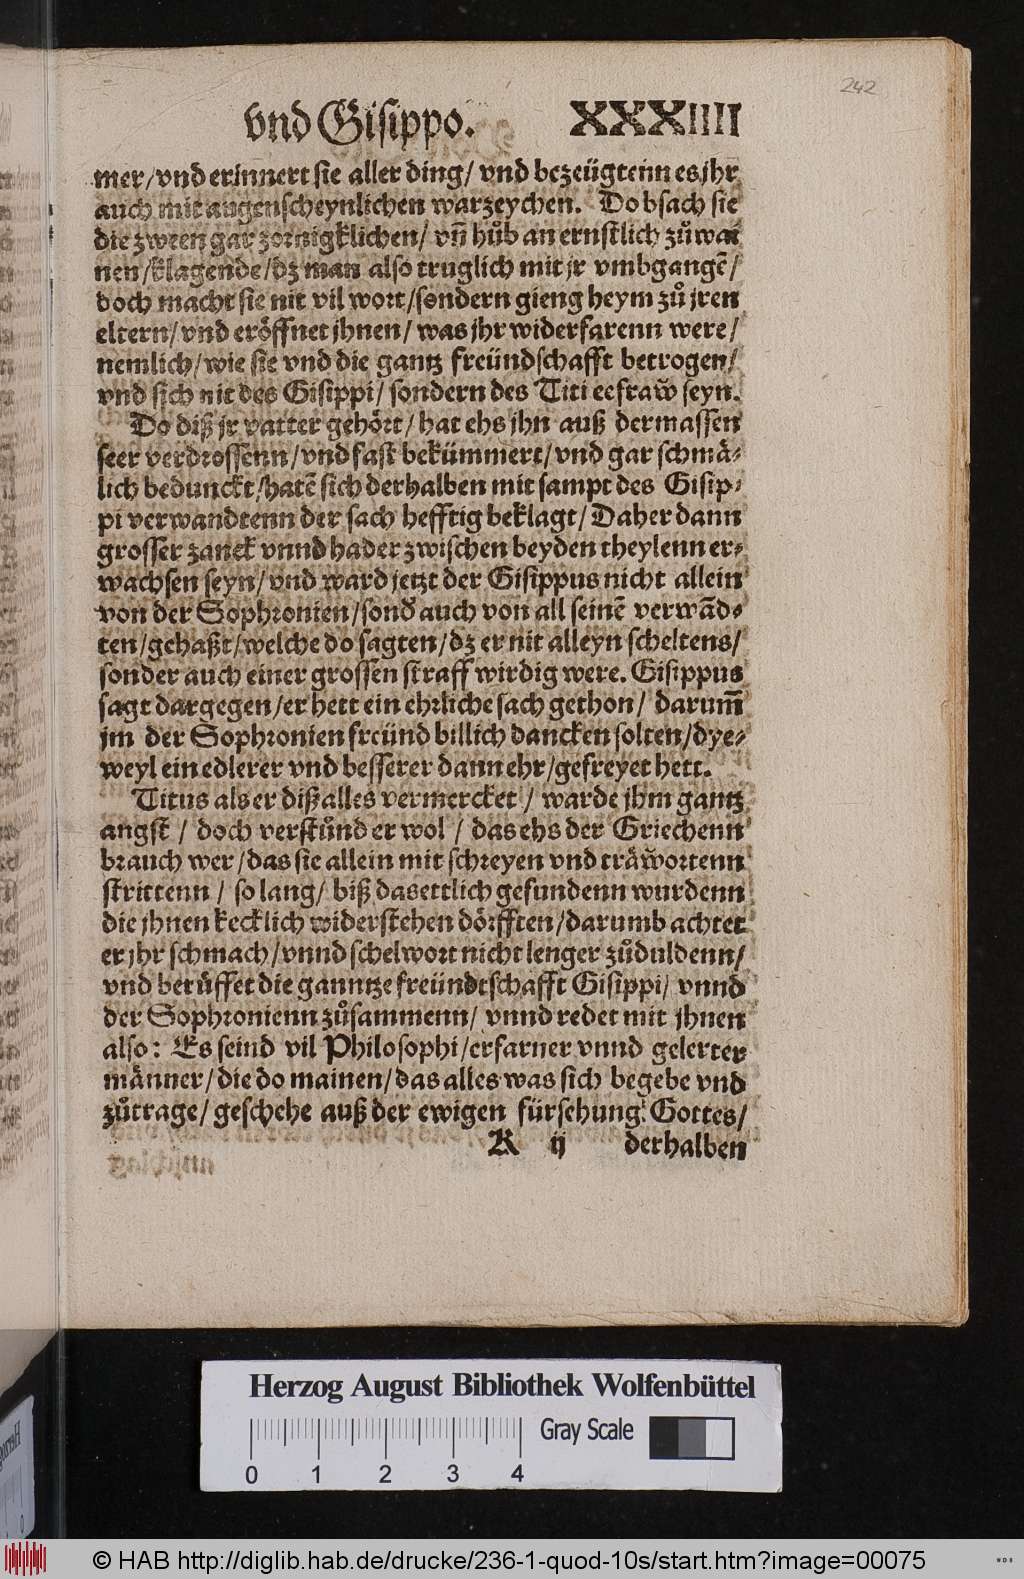 242
vnd Gisippo. XXXIIII
mer/vnd erinnert sie aller ding/ vnd bezeügtenn es jhr
auch mit augenscheynlichen warzeychen. Do bsach sie
die zween gar zornigklichen/ vñ hůb an ernstlich zů wai
nen/klagende/dz man also truglich mit jr vmbgangẽ/
doch macht sie nit vil wort/sondern gieng heym zů jren
eltern/vnd eröffnet jhnen/ was jhr widerfarenn were/
nemlich/wie sie vnd die gantz freündschafft betrogen/
vnd sich nit des Gisippi/ sondern des Titi eefraw̃ seyn.
Do diß jr vatter gehört/ hat ehs jhn auß dermassen
seer verdrossenn/vnd fast bekümmert/vnd gar schmä-
lich bedunckt/hatẽ sich derhalben mit sampt des Gisip-
pi verwandtenn der sach hefftig beklagt/ Daher dann
grosser zanck vnnd hader zwischen beyden theylenn er-
wachsen seyn/vnd ward jetzt der Gisippus nicht allein
von der Sophronien/sond̃ auch von all seinẽ verwãd-
ten/gehaßt/welche do sagten/dz er nit alleyn scheltens/
sonder auch einer grossen straff wirdig were. Gisippus
sagt dargegen/er hett ein ehrliche sach gethon/ darum̃
jm der Sophronien freünd billich dancken solten/dye-
weyl ein edlerer vnd besserer dann ehr/gefreyet hett.
Titus als er diß alles vermercket / warde jhm gantz
angst / doch verstůnd er wol / das ehs der Griechenn
brauch wer/das sie allein mit schreyen vnd träw̃ortenn
strittenn / so lang/ biß das ettlich gefundenn wurdenn
die jhnen kecklich widerstehen dörfften/darumb achtet
er jhr schmach/vnnd schelwort nicht lenger zůduldenn/
vnd berůffet die ganntze freündtschafft Gisippi/ vnnd
der Sophronienn zůsammenn/ vnnd redet mit jhnen
also: Es seind vil Philosophi/erfarner vnnd gelerter
männer/die do mainen/das alles was sich begebe vnd
zůtrage/ geschehe auß der ewigen fürsehung Gottes/
K ij derhalben
Herzog August Bibliothek Wolfenbüttel
Gray Scale
0 1 2 3 4
© HAB http://diglib.hab.de/drucke/236-1-quod-10s/start.htm?image=00075